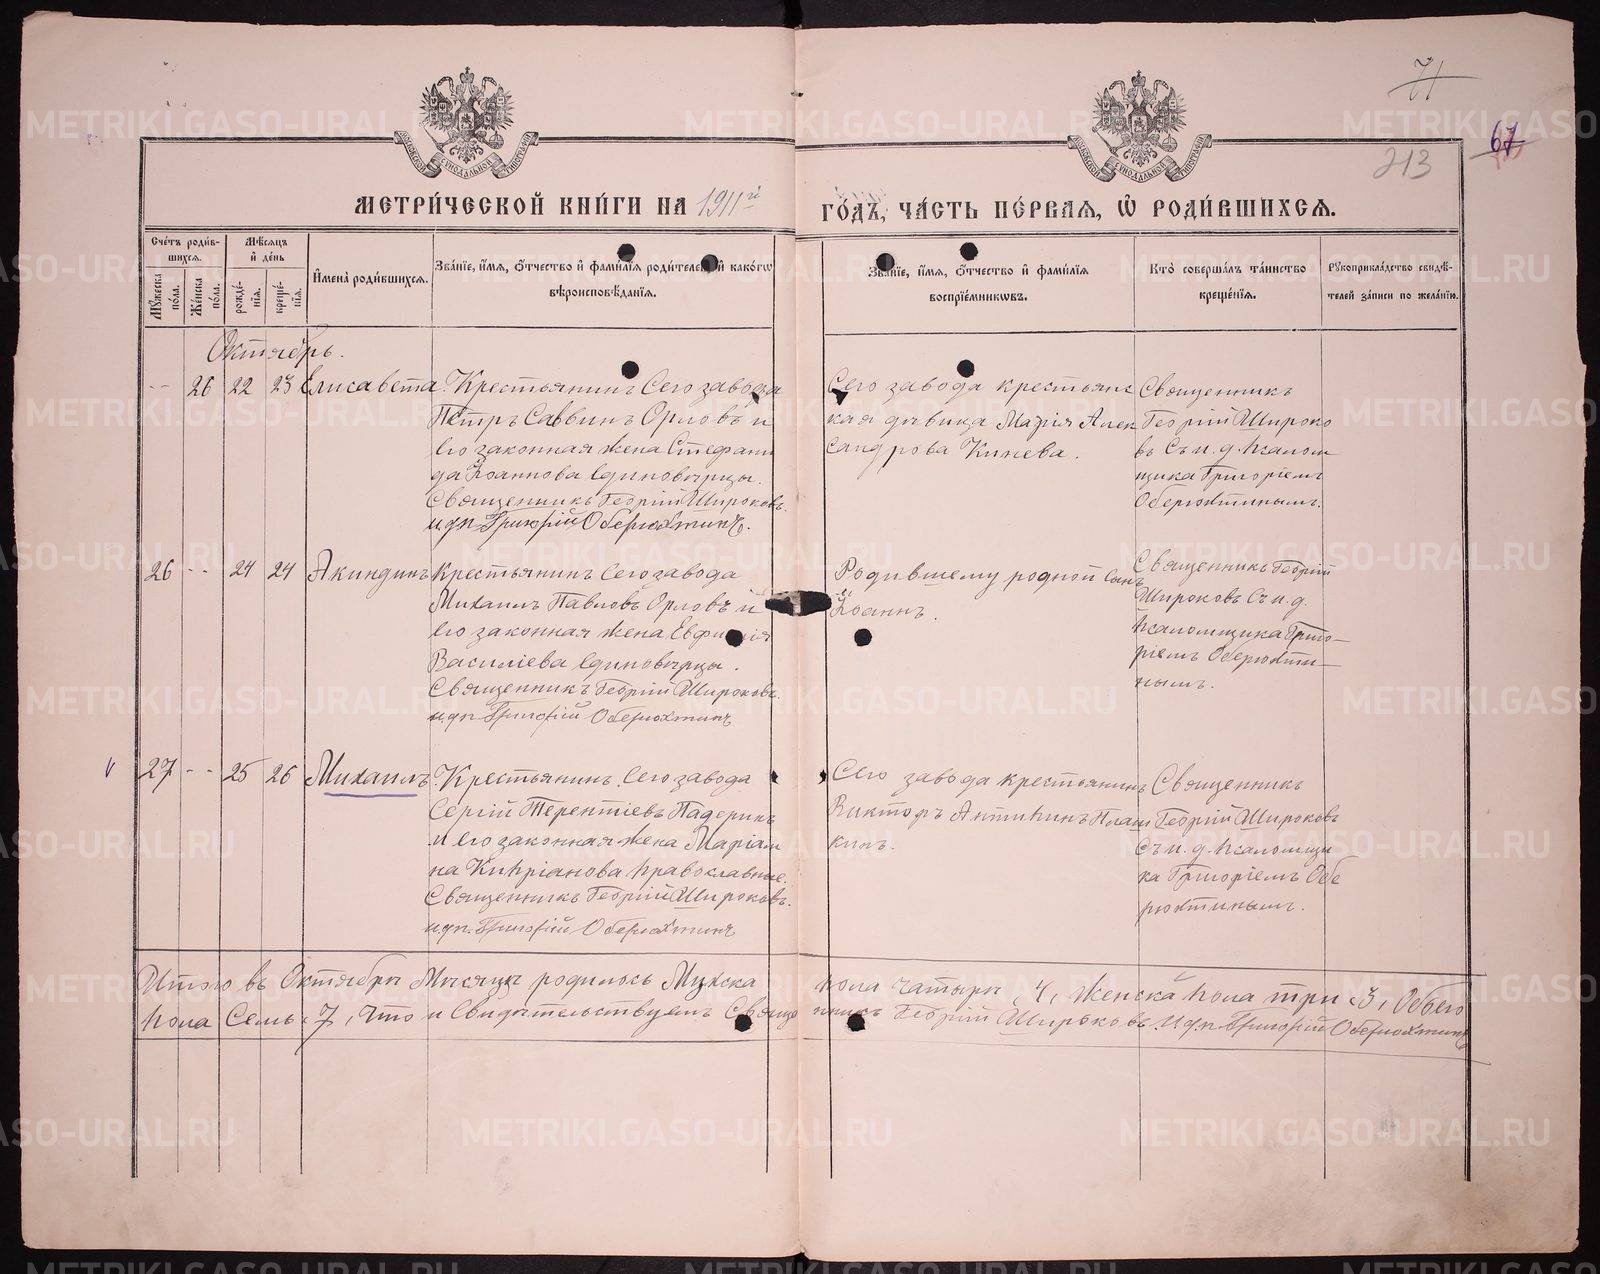 71
67
213
МЕТРИ́ЧЕСКОЙ КНИ́ГИ НА 1911й ГО́ДЪ, ЧА́СТЬ ПЕ́РВАЯ, Ѡ РОДИ́ВШИХСЯ.
Сче́тъ роди́в-
шихся.
Мꙋ́жеска по́ла.
Же́нска по́ла.
Мѣ́сяцъ
и҆ де́нь
рожде́-
нїя.
креще́-
нїя.
И҆мена̀ роди́вшихся.
Зва́нїе, и҆́мя, ѻ҆́тчество и҆ фами́лїя роди́телей, и҆ како́гѡ
вѣроисповѣ́данїя.
Зва́нїе, и҆́мя, ѻ҆́тчество и҆ фами́лїя
воспрїе́мникѡвъ.
Кто̀ соверша́лъ та́инство
креще́нїя.
Рꙋкоприкла́дство свидѣ́-
телей за́писи по жела́нїю.
Октябрь.
-- 26 22 23 Елисавета
Крестьянинъ Сего завода
Петръ Саввинъ Орловъ и
его законная жена Стефани
да Іоаннова единовѣрцы.
Священникъ Георгій Широковъ.
и.д.п. Григорій Оберюхтинъ.
Сего завода крестьянс
кая дѣвица Марія Алек
сандрова Кинева.
Священникъ
Георгій Широко
въ Съ и. д. псалом
щика Григоріемъ
Оберюхтинымъ.
26 -- 24 24 Акиндинъ
Крестьянинъ Сего завода
Михаилъ Павловъ Орловъ и
его законная жена
Василіева единовѣрцы.
Священникъ Георгій Широковъ.
и.д.п. Григорій Оберюхтинъ
Родившему родной сынъ
Іоаннъ.
Священникъ Георгій
Широковъ Съ и. д.
псаломщика Григо-
ріемъ Оберюхти-
нымъ.
27 -- 25 26 Михаилъ
Крестьянинъ Сего завода
Сергій Терентіевъ Падеринъ
и его законная жена Маріам
на Кипріанова православные.
Священникъ Георгій Широковъ.
и.д.п. Григорій Оберюхтинъ
Сего завода крестьянинъ
Викторъ Антипинъ Плаш
кинъ.
Священникъ
Георгій Широковъ
Съ и. д. псаломщи
ка Григоріемъ Обе
рюхтинымъ.
Итого въ Октябрѣ Мѣсяцѣ родилось Мужска пола Четыре "4", Женска пола три "3", Обоего
пола Семь "7", Что и Свидѣтельствуемъ Священникъ Георгій Широковъ. И.д.п. Григорій Оберюхтинъ